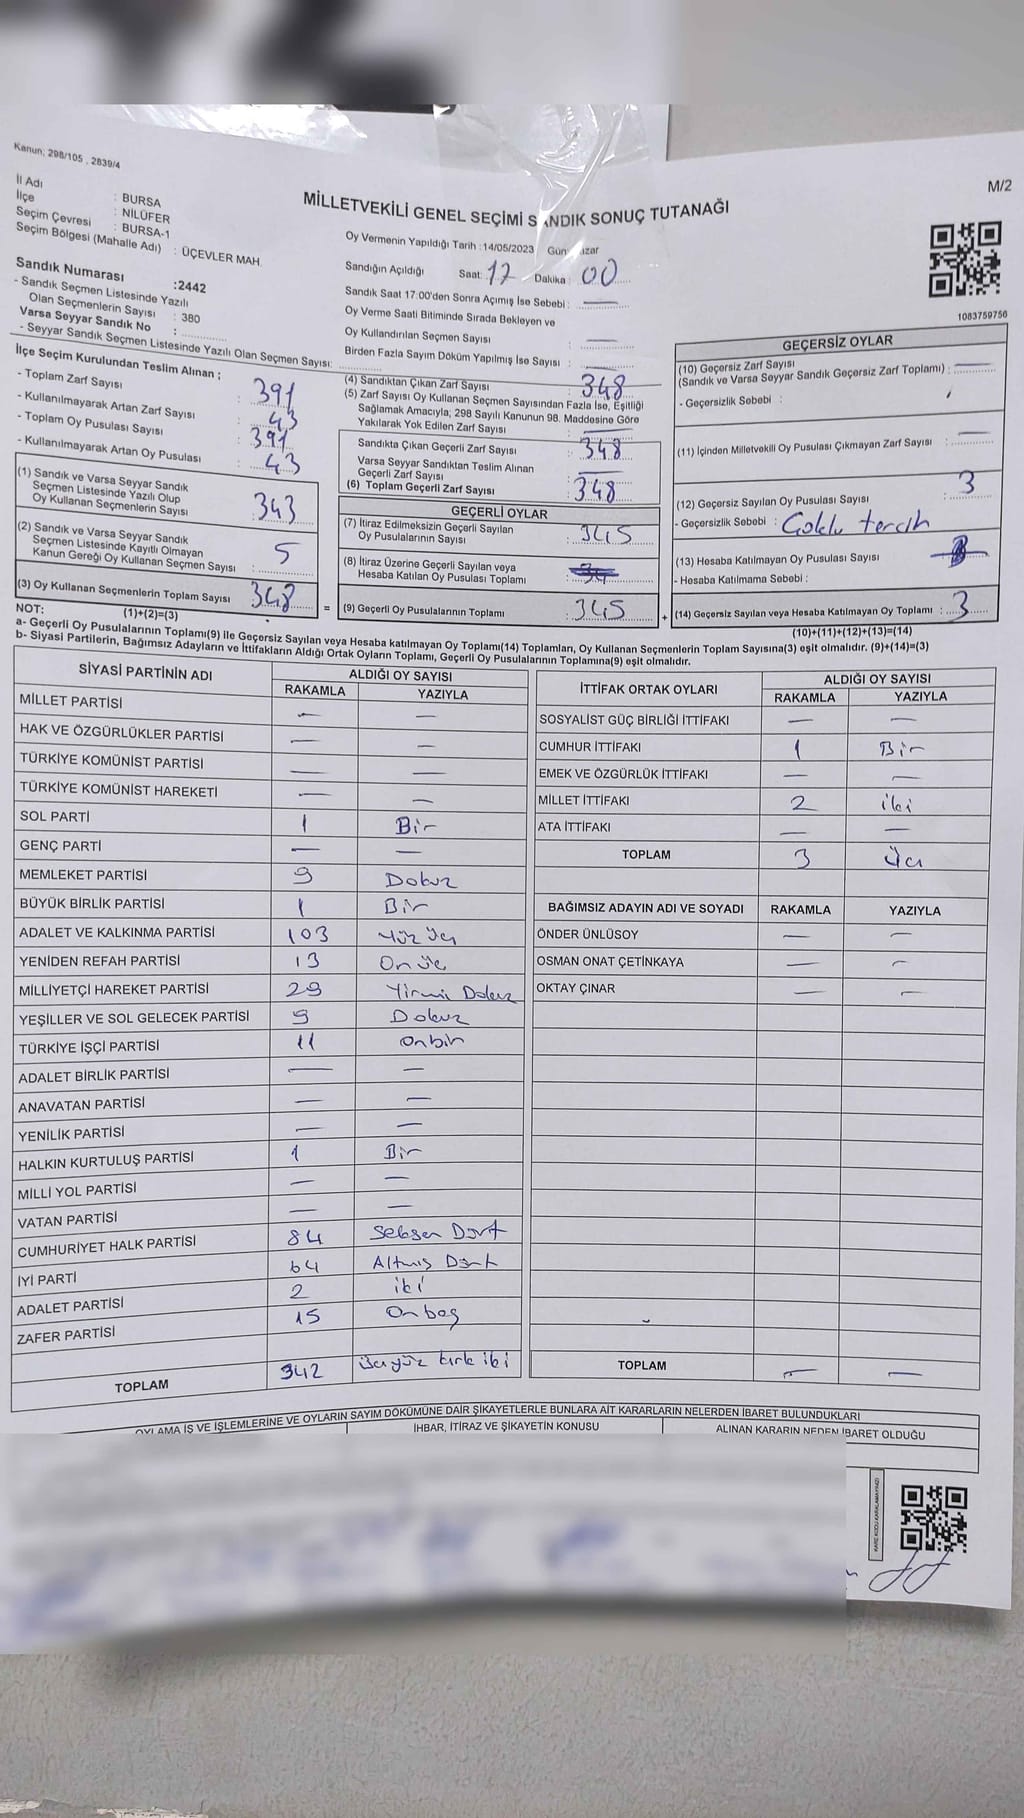 Kanun; 298/105 , 2839/4
M/2
İl Adı : BURSA
İlçe : NİLÜFER
Seçim Çevresi : BURSA-1
Seçim Bölgesi (Mahalle Adı) : ÜÇEVLER MAH.
Sandık Numarası :2442
- Sandık Seçmen Listesinde Yazılı
Olan Seçmenlerin Sayısı : 380
Varsa Seyyar Sandık No :
- Seyyar Sandık Seçmen Listesinde Yazılı Olan Seçmen Sayısı:
İlçe Seçim Kurulundan Teslim Alınan ;
- Toplam Zarf Sayısı : 391
- Kullanılmayarak Artan Zarf Sayısı : 43
- Toplam Oy Pusulası Sayısı : 391
- Kullanılmayarak Artan Oy Pusulası : 43
(1) Sandık ve Varsa Seyyar Sandık
Seçmen Listesinde Yazılı Olup
Oy Kullanan Seçmenlerin Sayısı : 343
(2) Sandık ve Varsa Seyyar Sandık
Seçmen Listesinde Kayıtlı Olmayan
Kanun Gereği Oy Kullanan Seçmen Sayısı : 5
(3) Oy Kullanan Seçmenlerin Toplam Sayısı : 348
(1)+(2)=(3)
MİLLETVEKİLİ GENEL SEÇİMİ SANDIK SONUÇ TUTANAĞI
Oy Vermenin Yapıldığı Tarih :14/05/2023 Gün
Sandığın Açıldığı Saat: 17 Dakika : 00
Sandık Saat 17:00'den Sonra Açımış İse Sebebi : —
Oy Verme Saati Bitiminde Sırada Bekleyen ve
Oy Kullandırılan Seçmen Sayısı : —
Birden Fazla Sayım Döküm Yapılmış İse Sayısı : —
(4) Sandıktan Çıkan Zarf Sayısı : 348
(5) Zarf Sayısı Oy Kullanan Seçmen Sayısından Fazla İse, Eşitliği
Sağlamak Amacıyla, 298 Sayılı Kanunun 98. Maddesine Göre
Yakılarak Yok Edilen Zarf Sayısı : —
Sandıkta Çıkan Geçerli Zarf Sayısı : 348
Varsa Seyyar Sandıktan Teslim Alınan
Geçerli Zarf Sayısı : —
(6) Toplam Geçerli Zarf Sayısı : 348
GEÇERLİ OYLAR
(7) İtiraz Edilmeksizin Geçerli Sayılan
Oy Pusulalarının Sayısı : 345
(8) İtiraz Üzerine Geçerli Sayılan veya
Hesaba Katılan Oy Pusulası Toplamı :
= (9) Geçerli Oy Pusulalarının Toplamı : 345
1083759756
GEÇERSİZ OYLAR
(10) Geçersiz Zarf Sayısı
(Sandık ve Varsa Seyyar Sandık Geçersiz Zarf Toplamı) : —
- Geçersizlik Sebebi :
(11) İçinden Milletvekili Oy Pusulası Çıkmayan Zarf Sayısı : —
(12) Geçersiz Sayılan Oy Pusulası Sayısı : 3
- Geçersizlik Sebebi : Çoklu tercih
(13) Hesaba Katılmayan Oy Pusulası Sayısı :
- Hesaba Katılmama Sebebi :
+ (14) Geçersiz Sayılan veya Hesaba Katılmayan Oy Toplamı : 3
(10)+(11)+(12)+(13)=(14)
NOT:
a- Geçerli Oy Pusulalarının Toplamı(9) ile Geçersiz Sayılan veya Hesaba katılmayan Oy Toplamı(14) Toplamları, Oy Kullanan Seçmenlerin Toplam Sayısına(3) eşit olmalıdır. (9)+(14)=(3)
b- Siyasi Partilerin, Bağımsız Adayların ve İttifakların Aldığı Ortak Oyların Toplamı, Geçerli Oy Pusulalarının Toplamına(9) eşit olmalıdır.
SİYASİ PARTİNİN ADI ALDIĞI OY SAYISI
RAKAMLA YAZIYLA
MİLLET PARTİSİ — —
HAK VE ÖZGÜRLÜKLER PARTİSİ — —
TÜRKİYE KOMÜNİST PARTİSİ — —
TÜRKİYE KOMÜNİST HAREKETİ — —
SOL PARTİ 1 Bir
GENÇ PARTİ — —
MEMLEKET PARTİSİ 9 Dokuz
BÜYÜK BİRLİK PARTİSİ 1 Bir
ADALET VE KALKINMA PARTİSİ 103 Yüz Üç
YENİDEN REFAH PARTİSİ 13 On üç
MİLLİYETÇİ HAREKET PARTİSİ 29 Yirmi Dokuz
YEŞİLLER VE SOL GELECEK PARTİSİ 9 Dokuz
TÜRKİYE İŞÇİ PARTİSİ 11 Onbir
ADALET BİRLİK PARTİSİ — —
ANAVATAN PARTİSİ — —
YENİLİK PARTİSİ — —
HALKIN KURTULUŞ PARTİSİ 1 Bir
MİLLİ YOL PARTİSİ — —
VATAN PARTİSİ — —
CUMHURİYET HALK PARTİSİ 84 Seksen Dört
İYİ PARTİ 64 Altmış Dört
ADALET PARTİSİ 2 iki
ZAFER PARTİSİ 15 Onbeş
TOPLAM 342 Üçyüz kırk iki
İTTİFAK ORTAK OYLARI ALDIĞI OY SAYISI
RAKAMLA YAZIYLA
SOSYALİST GÜÇ BİRLİĞİ İTTİFAKI — —
CUMHUR İTTİFAKI 1 Bir
EMEK VE ÖZGÜRLÜK İTTİFAKI — —
MİLLET İTTİFAKI 2 iki
ATA İTTİFAKI — —
TOPLAM 3 Üç
BAĞIMSIZ ADAYIN ADI VE SOYADI RAKAMLA YAZIYLA
ÖNDER ÜNLÜSOY — —
OSMAN ONAT ÇETİNKAYA — —
OKTAY ÇINAR — —
TOPLAM — —
OYLAMA İŞ VE İŞLEMLERİNE VE OYLARIN SAYIM DÖKÜMÜNE DAİR ŞİKAYETLERLE BUNLARA AİT KARARLARIN NELERDEN İBARET BULUNDUKLARI
İHBAR, İTİRAZ VE ŞİKAYETİN KONUSU
ALINAN KARARIN NEDEN İBARET OLDUĞU